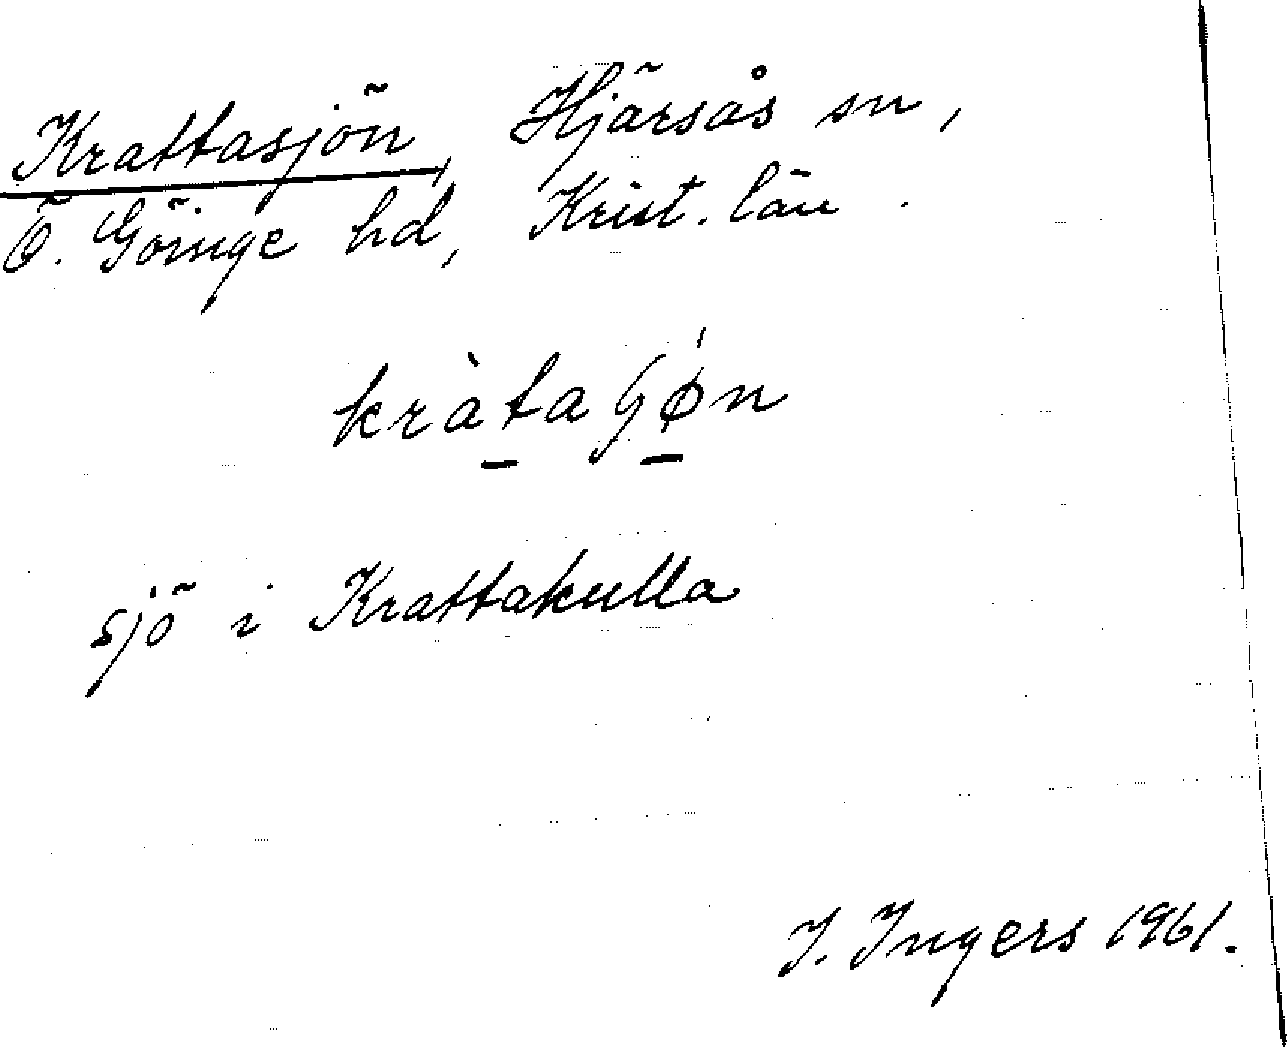 Krattasjön, Hjärsås sn,
Ö. Göinge hd, Krist. län.
kràtaʕǿn
sjö i Krattakulla
I. Ingers 1961.